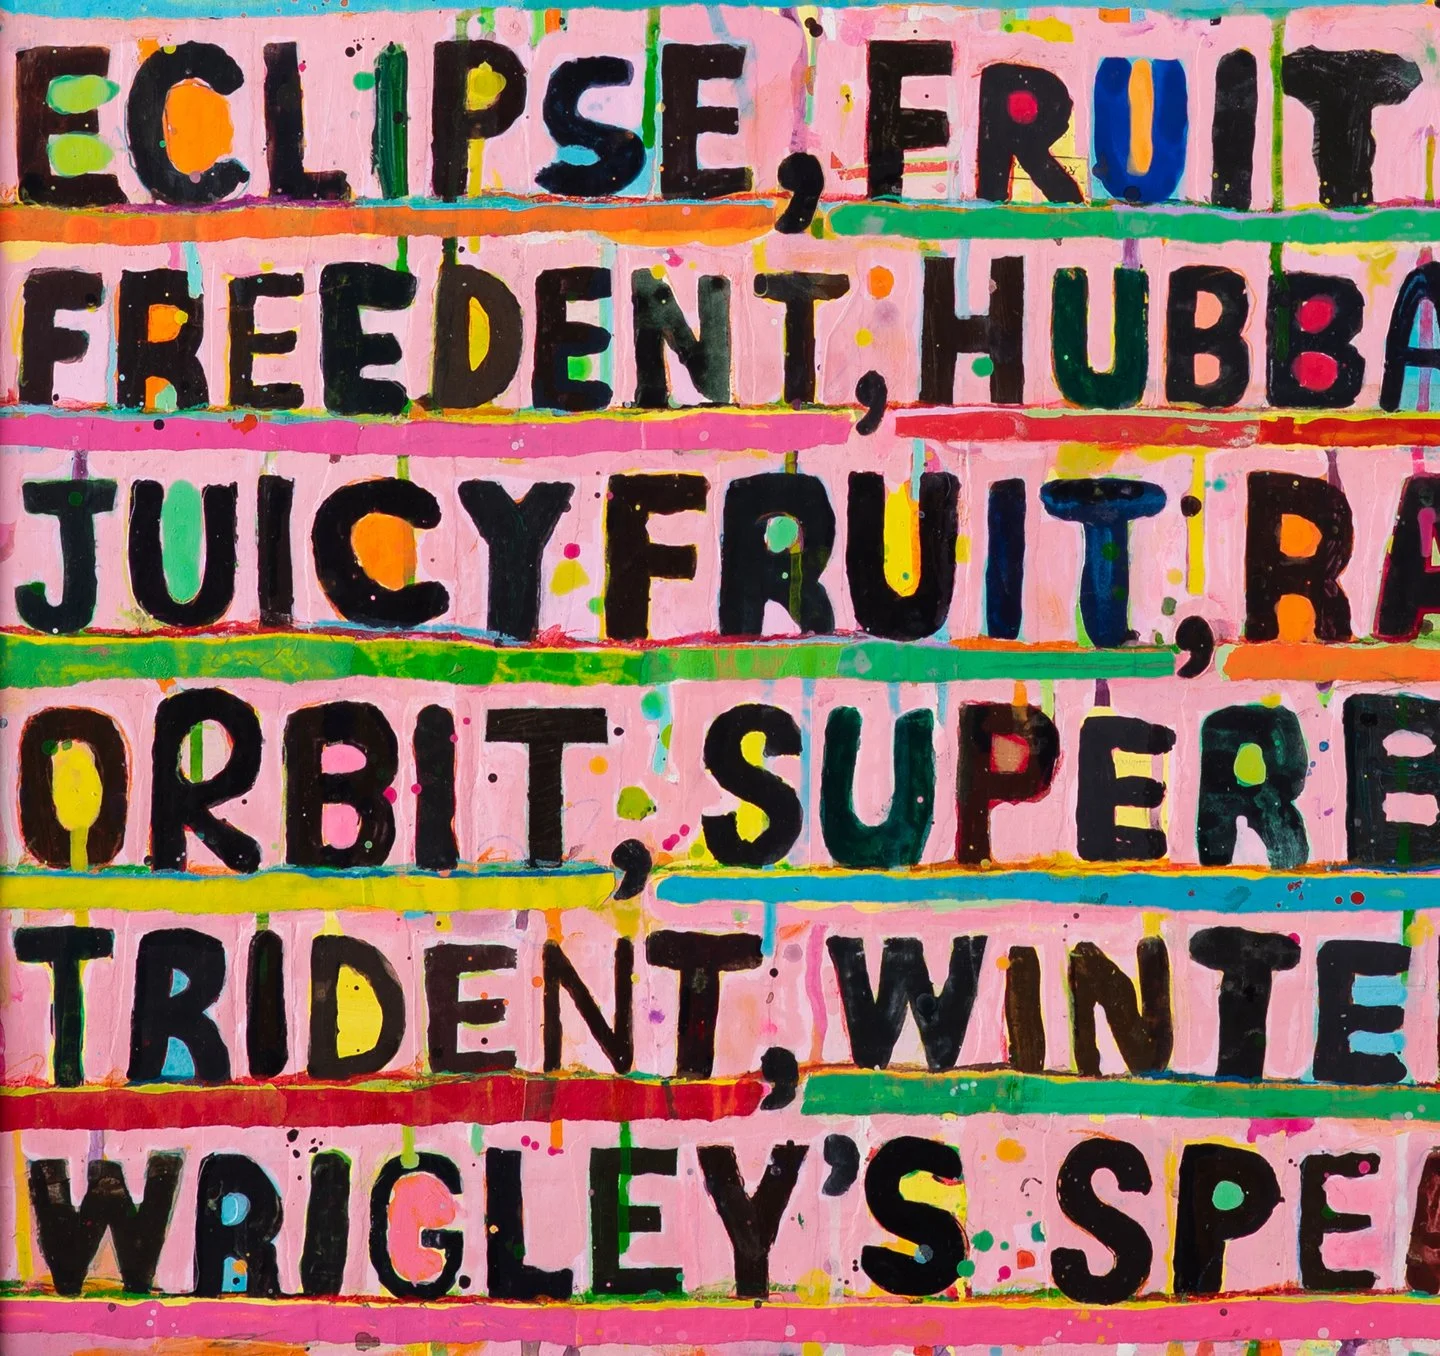 ECLIPSE, FRUIT
FREEDENT, HUBBA
JUICYFRUIT, RA
ORBIT, SUPERB
TRIDENT, WINTE
WRIGLEY'S SPEA